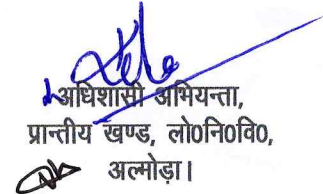 अधिशासी अभियन्ता,
प्रान्तीय खण्ड, लो०नि०वि०,
अल्मोड़ा।